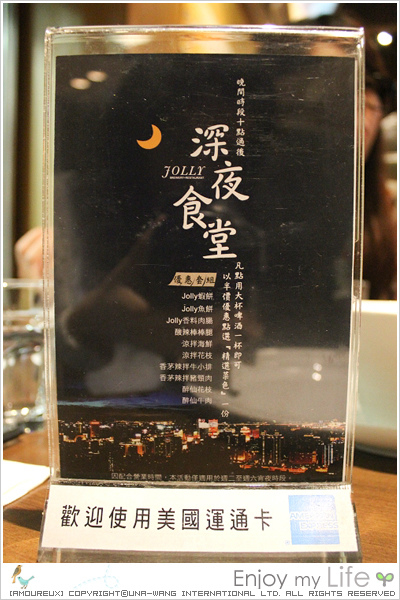 晚間時段十點過後
深夜食堂
JOLLY
凡點用大杯啤酒一杯即可
以半價優惠點選『精選菜色』一份
優惠套組
Jolly蝦餅
Jolly魚餅
Jolly香料肉腸
酸辣棒棒腿
涼拌海鮮
涼拌花枝
香茅辣拌牛小排
香茅辣拌豬頸肉
醉仙花枝
醉仙牛肉
因配合營業時間，本活動僅適用於週二至週六宵夜時段。
歡迎使用美國運通卡
Enjoy my Life
[AMOUREUX] COPYRIGHT©UNA-WANG INTERNATIONAL LTD. ALL RIGHTS RESERVED